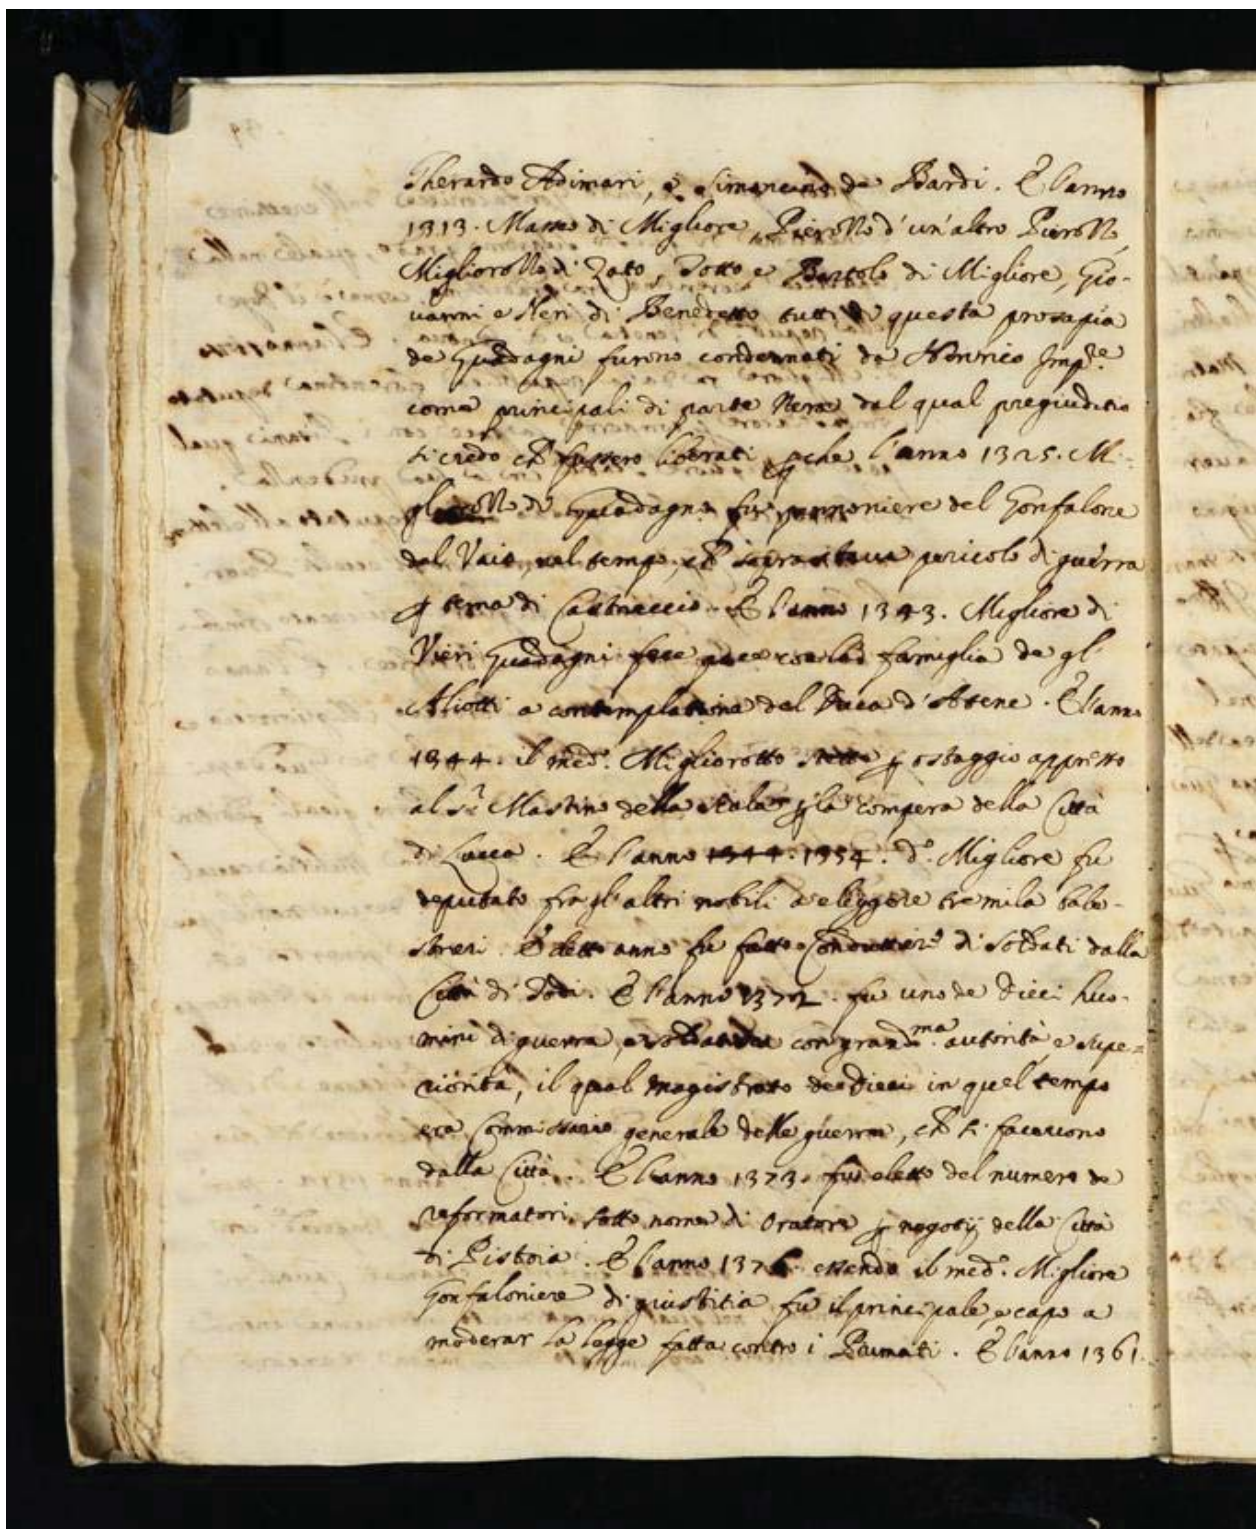 Gherardo Adimari, e Simoncino de Bardi. E l'anno
1313. Masso di Migliore, Pierotto d'un'altro Pierotto
Migliorotto di Zato, Totto e Bartolo di Migliore, Gio-
uanni e Neri di Benedetto tutti di questa prosapia
de Guadagni furono condennati da Henrico Imp.re
come principali di parte Nera dal qual pregiuditio
si credo ch fussero liberati pche l'anno 1325. Mi-
gliorotto di Guadagno fu pennoniere del Gonfalone
del Vaio, nel tempo, ch soprastaua pericolo di guerra
p tema di Castruccio. E l'anno 1343. Migliore di
Vieri Guadagni fece pace con la famiglia de gl'
Aliotti a contemplatione del Duca d'Atene. E l'anno
1344. il med.o Migliorotto stette p ostaggio appresso
al S.r Mastino della Scala p la compera della Città
di Lucca. E l'anno 1344. 1354. d.o Migliore fu
deputato fra gl'altri nobili a eleggere tremila bale-
strieri. E detto anno fu fatto Conduttiere di soldati dalla
Città di Todi. E l'anno 1372. fu uno de Dieci huo-
mini di guerra, con grand.ma autorità, e supe-
riorità, il qual magistrato de Dieci in quel tempo
era Commissario generale delle guerre, ch si faceuono
dalla Città. E l'anno 1373. fu eletto del numero de
reformatori, sotto nome di Oratore p negotij della Città
di Pistoia. E l'anno essendo il med.o Migliore
Gonfaloniere di giustitia fu il principale, e capo a
moderar la legge fatta contro i E l'anno 1361.